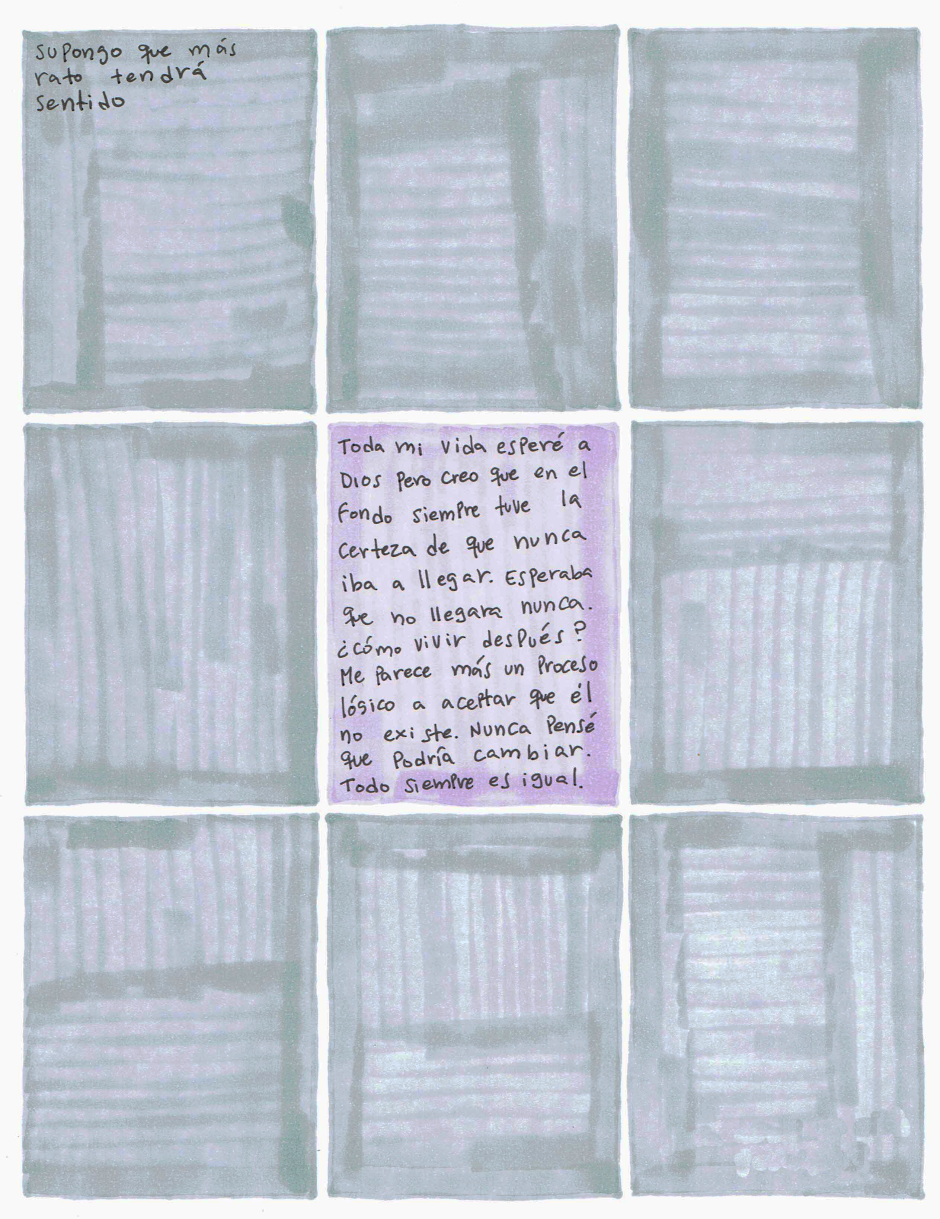 Supongo que más
rato tendrá
sentido
Toda mi vida esperé a
Dios pero creo que en el
fondo siempre tuve la
certeza de que nunca
iba a llegar. Esperaba
que no llegara nunca.
¿cómo vivir después?
Me parece más un proceso
lógico a aceptar que él
no existe. Nunca pensé
que podría cambiar.
Todo siempre es igual.